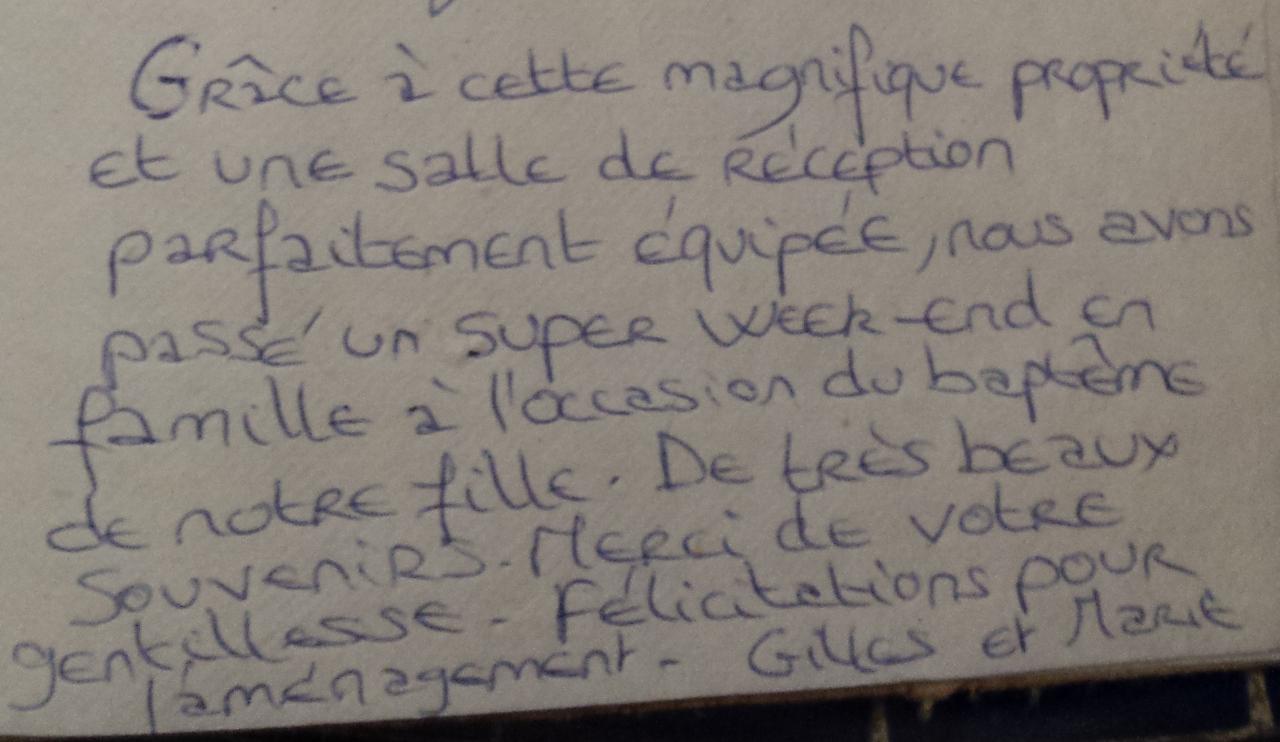 Grâce à cette magnifique propriété
et une salle de réception
parfaitement équipée, nous avons
passé un super week-end en
famille à l'occasion du baptême
de notre fille. De très beaux
souvenirs. Merci de votre
gentillesse. Félicitations pour
l'aménagement. Gilles et Marie